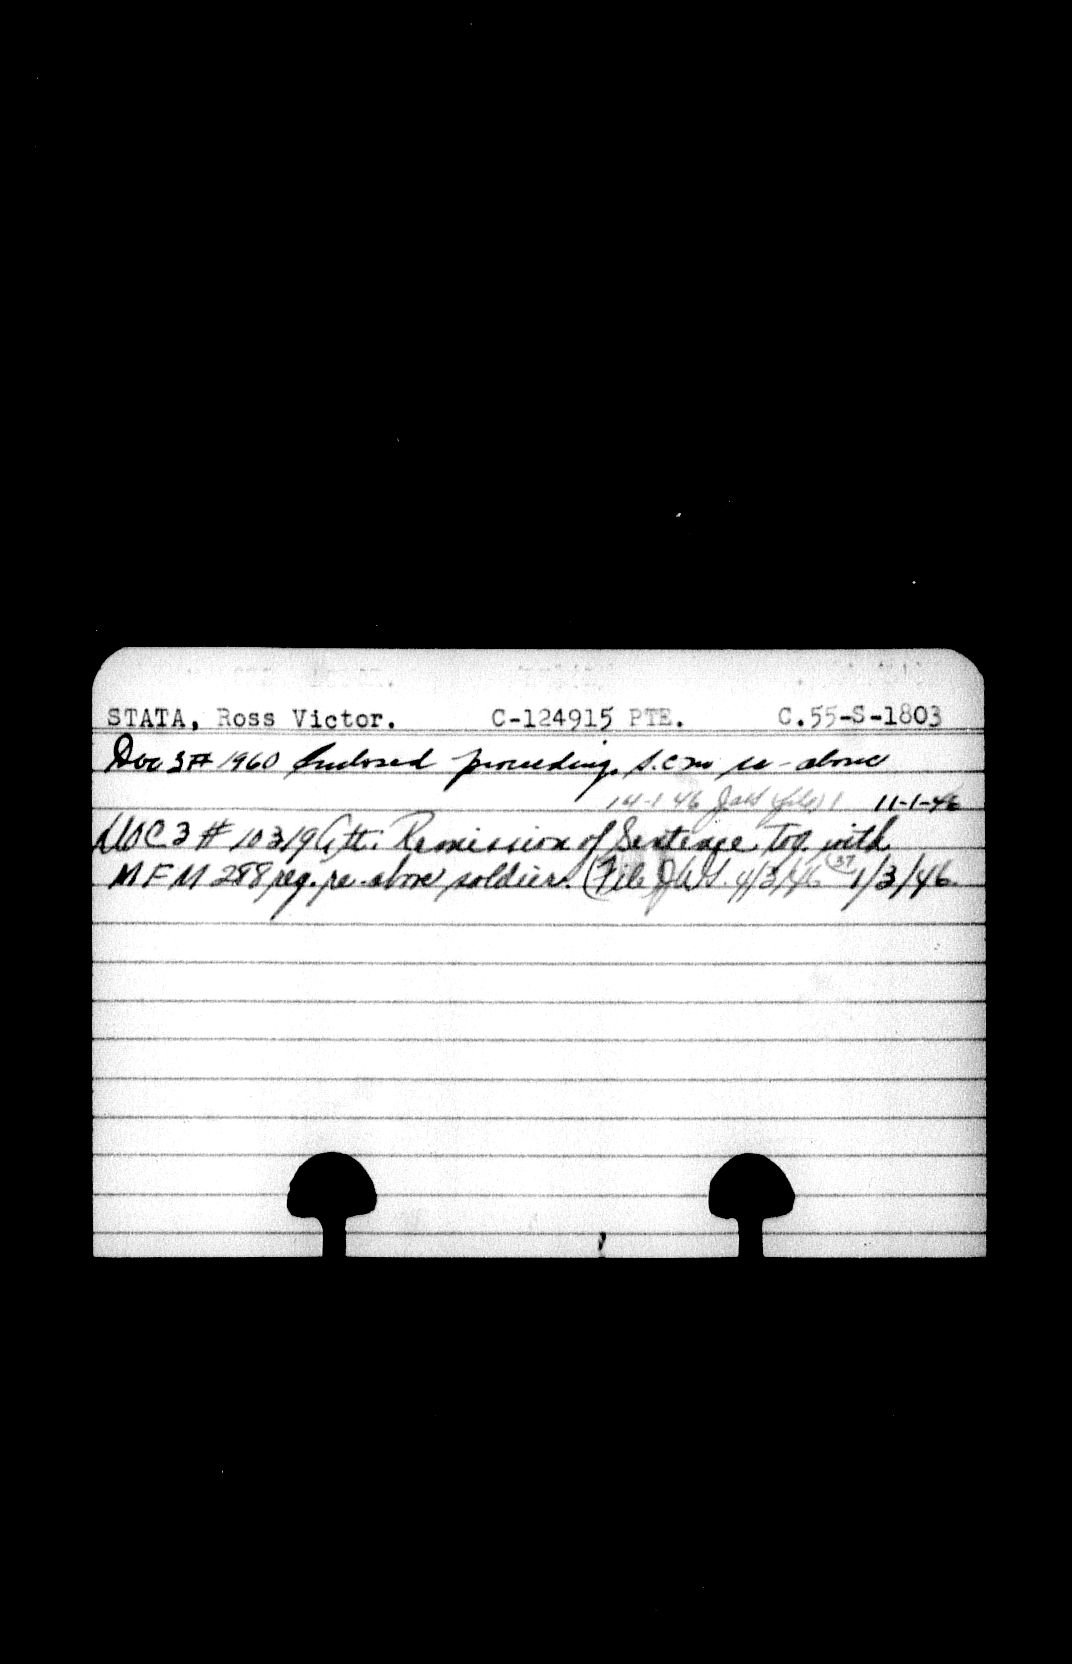 STATA, Ross Victor. C-124915 PTE. C.55-S-1803
Doc 3# 1960 Enclosed proceeding. S.C.M re - above
14-1-46 file 11-1-46
DOC 3 # 10319 Att. Remission of Sentence Tog. with
MFM 288 reg. re-above soldier. (File JWS. 4/3/46 37 1/3/46.